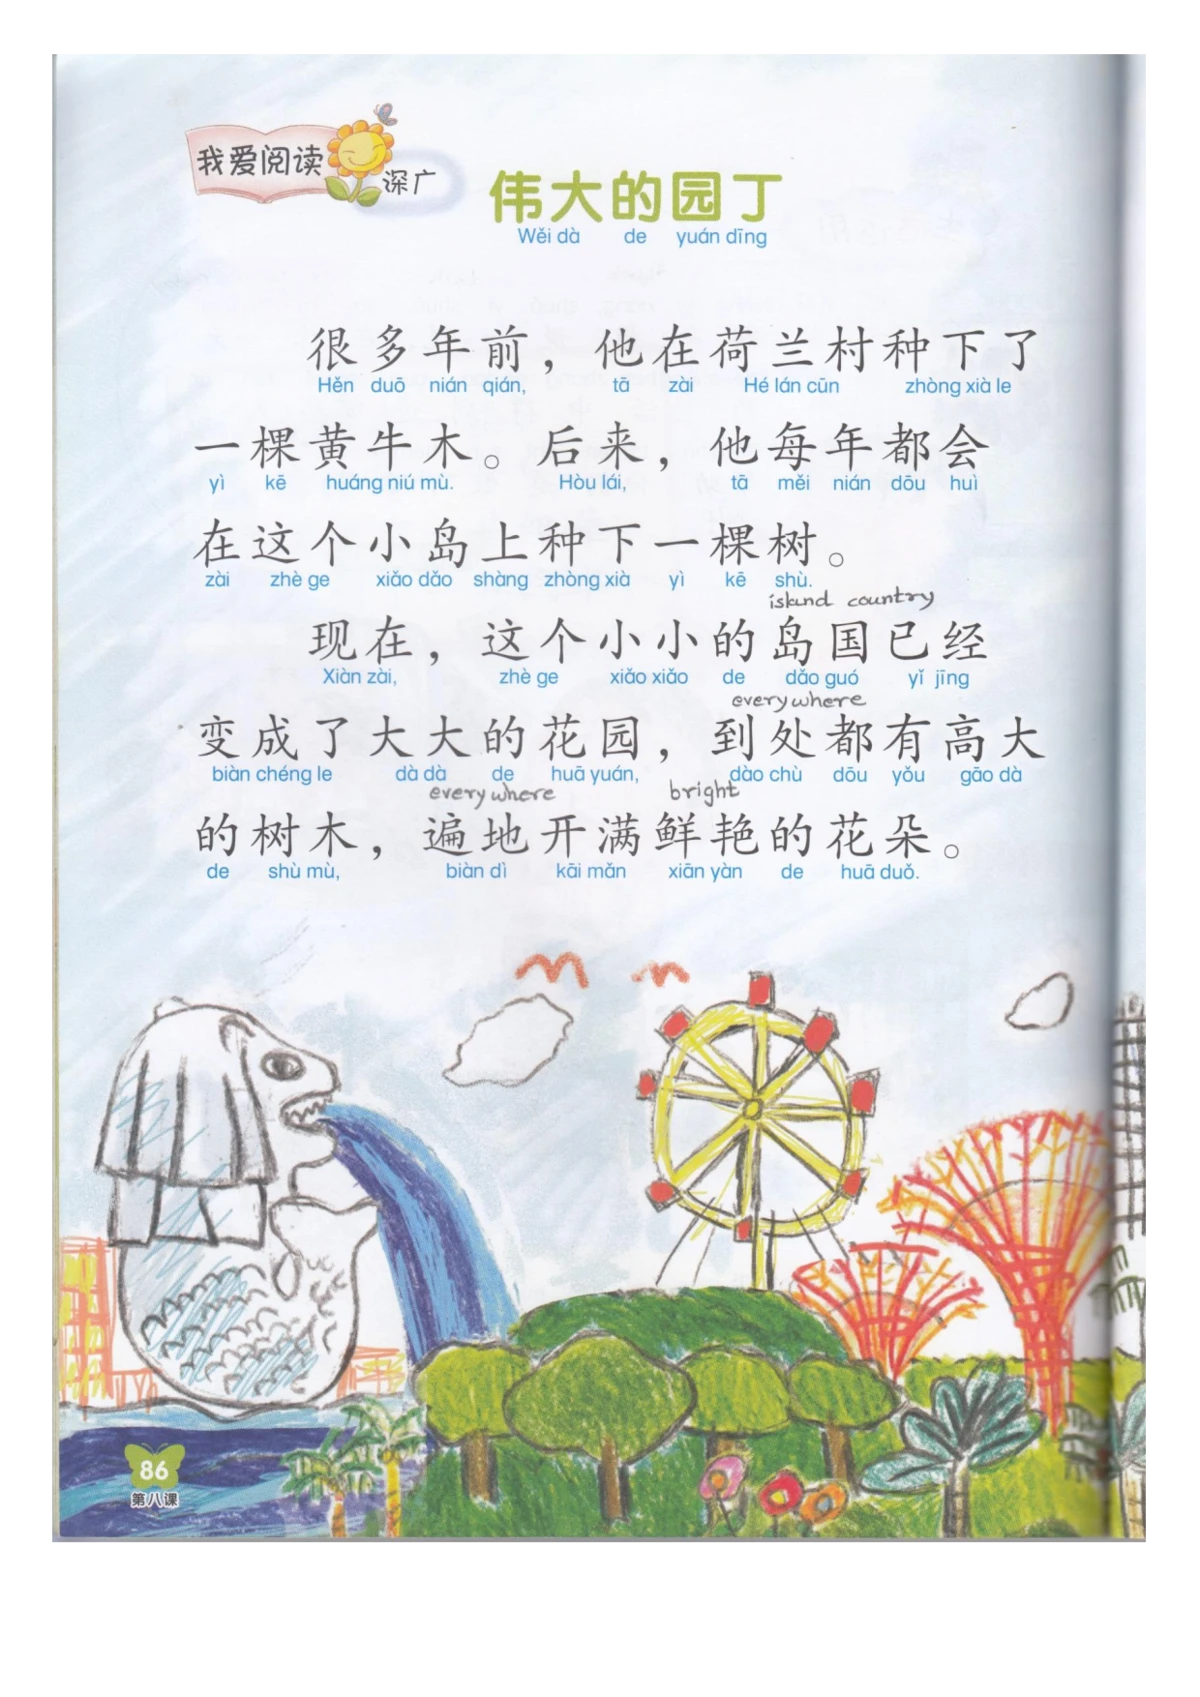 我爱阅读
深广
伟大的园丁
Wěi dà de yuán dīng
很多年前，他在荷兰村种下了
Hěn duō nián qián, tā zài Hé lán cūn zhòng xià le
一棵黄牛木。后来，他每年都会
yì kē huáng niú mù. Hòu lái, tā měi nián dōu huì
在这个小岛上种下一棵树。
zài zhè ge xiǎo dǎo shàng zhòng xià yì kē shù.
island country
现在，这个小小的岛国已经
Xiàn zài, zhè ge xiǎo xiǎo de dǎo guó yǐ jīng
everywhere
变成了大大的花园，到处都有高大
biàn chéng le dà dà de huā yuán, dào chù dōu yǒu gāo dà
everywhere bright
的树木，遍地开满鲜艳的花朵。
de shù mù, biàn dì kāi mǎn xiān yàn de huā duǒ.
86
第八课